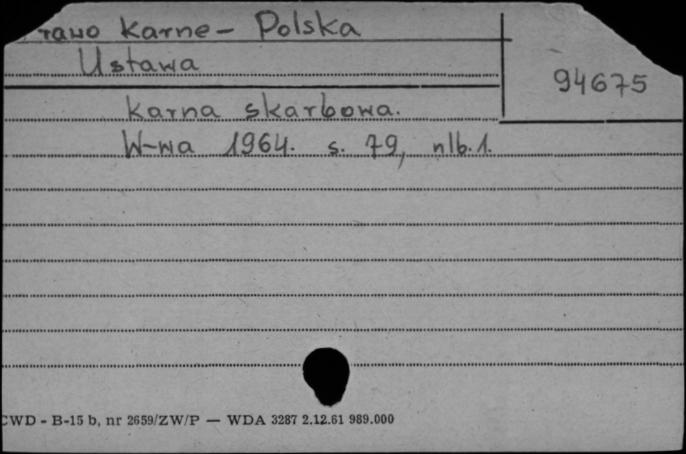 rawo Karne - Polska
Ustawa
94675
Karna skarbowa.
W-wa 1964. s. 79, nlb. 1.
CWD - B-15 b, nr 2659/ZW/P — WDA 3287 2.12.61 989.000